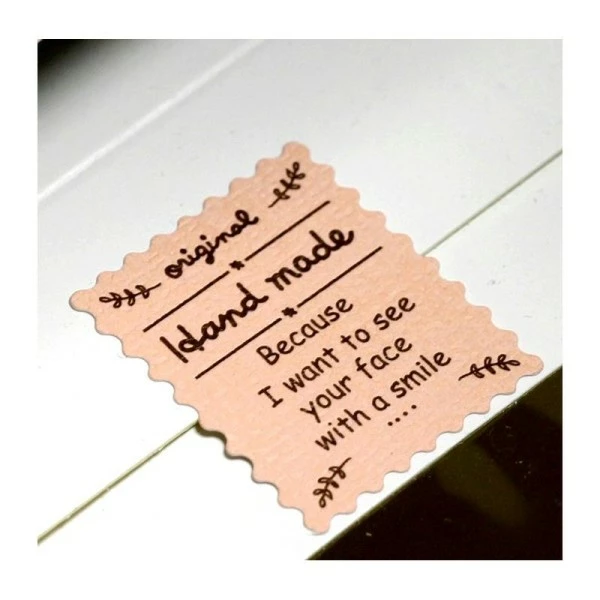 original
Hand made
Because
I want to see
your face
with a smile
....